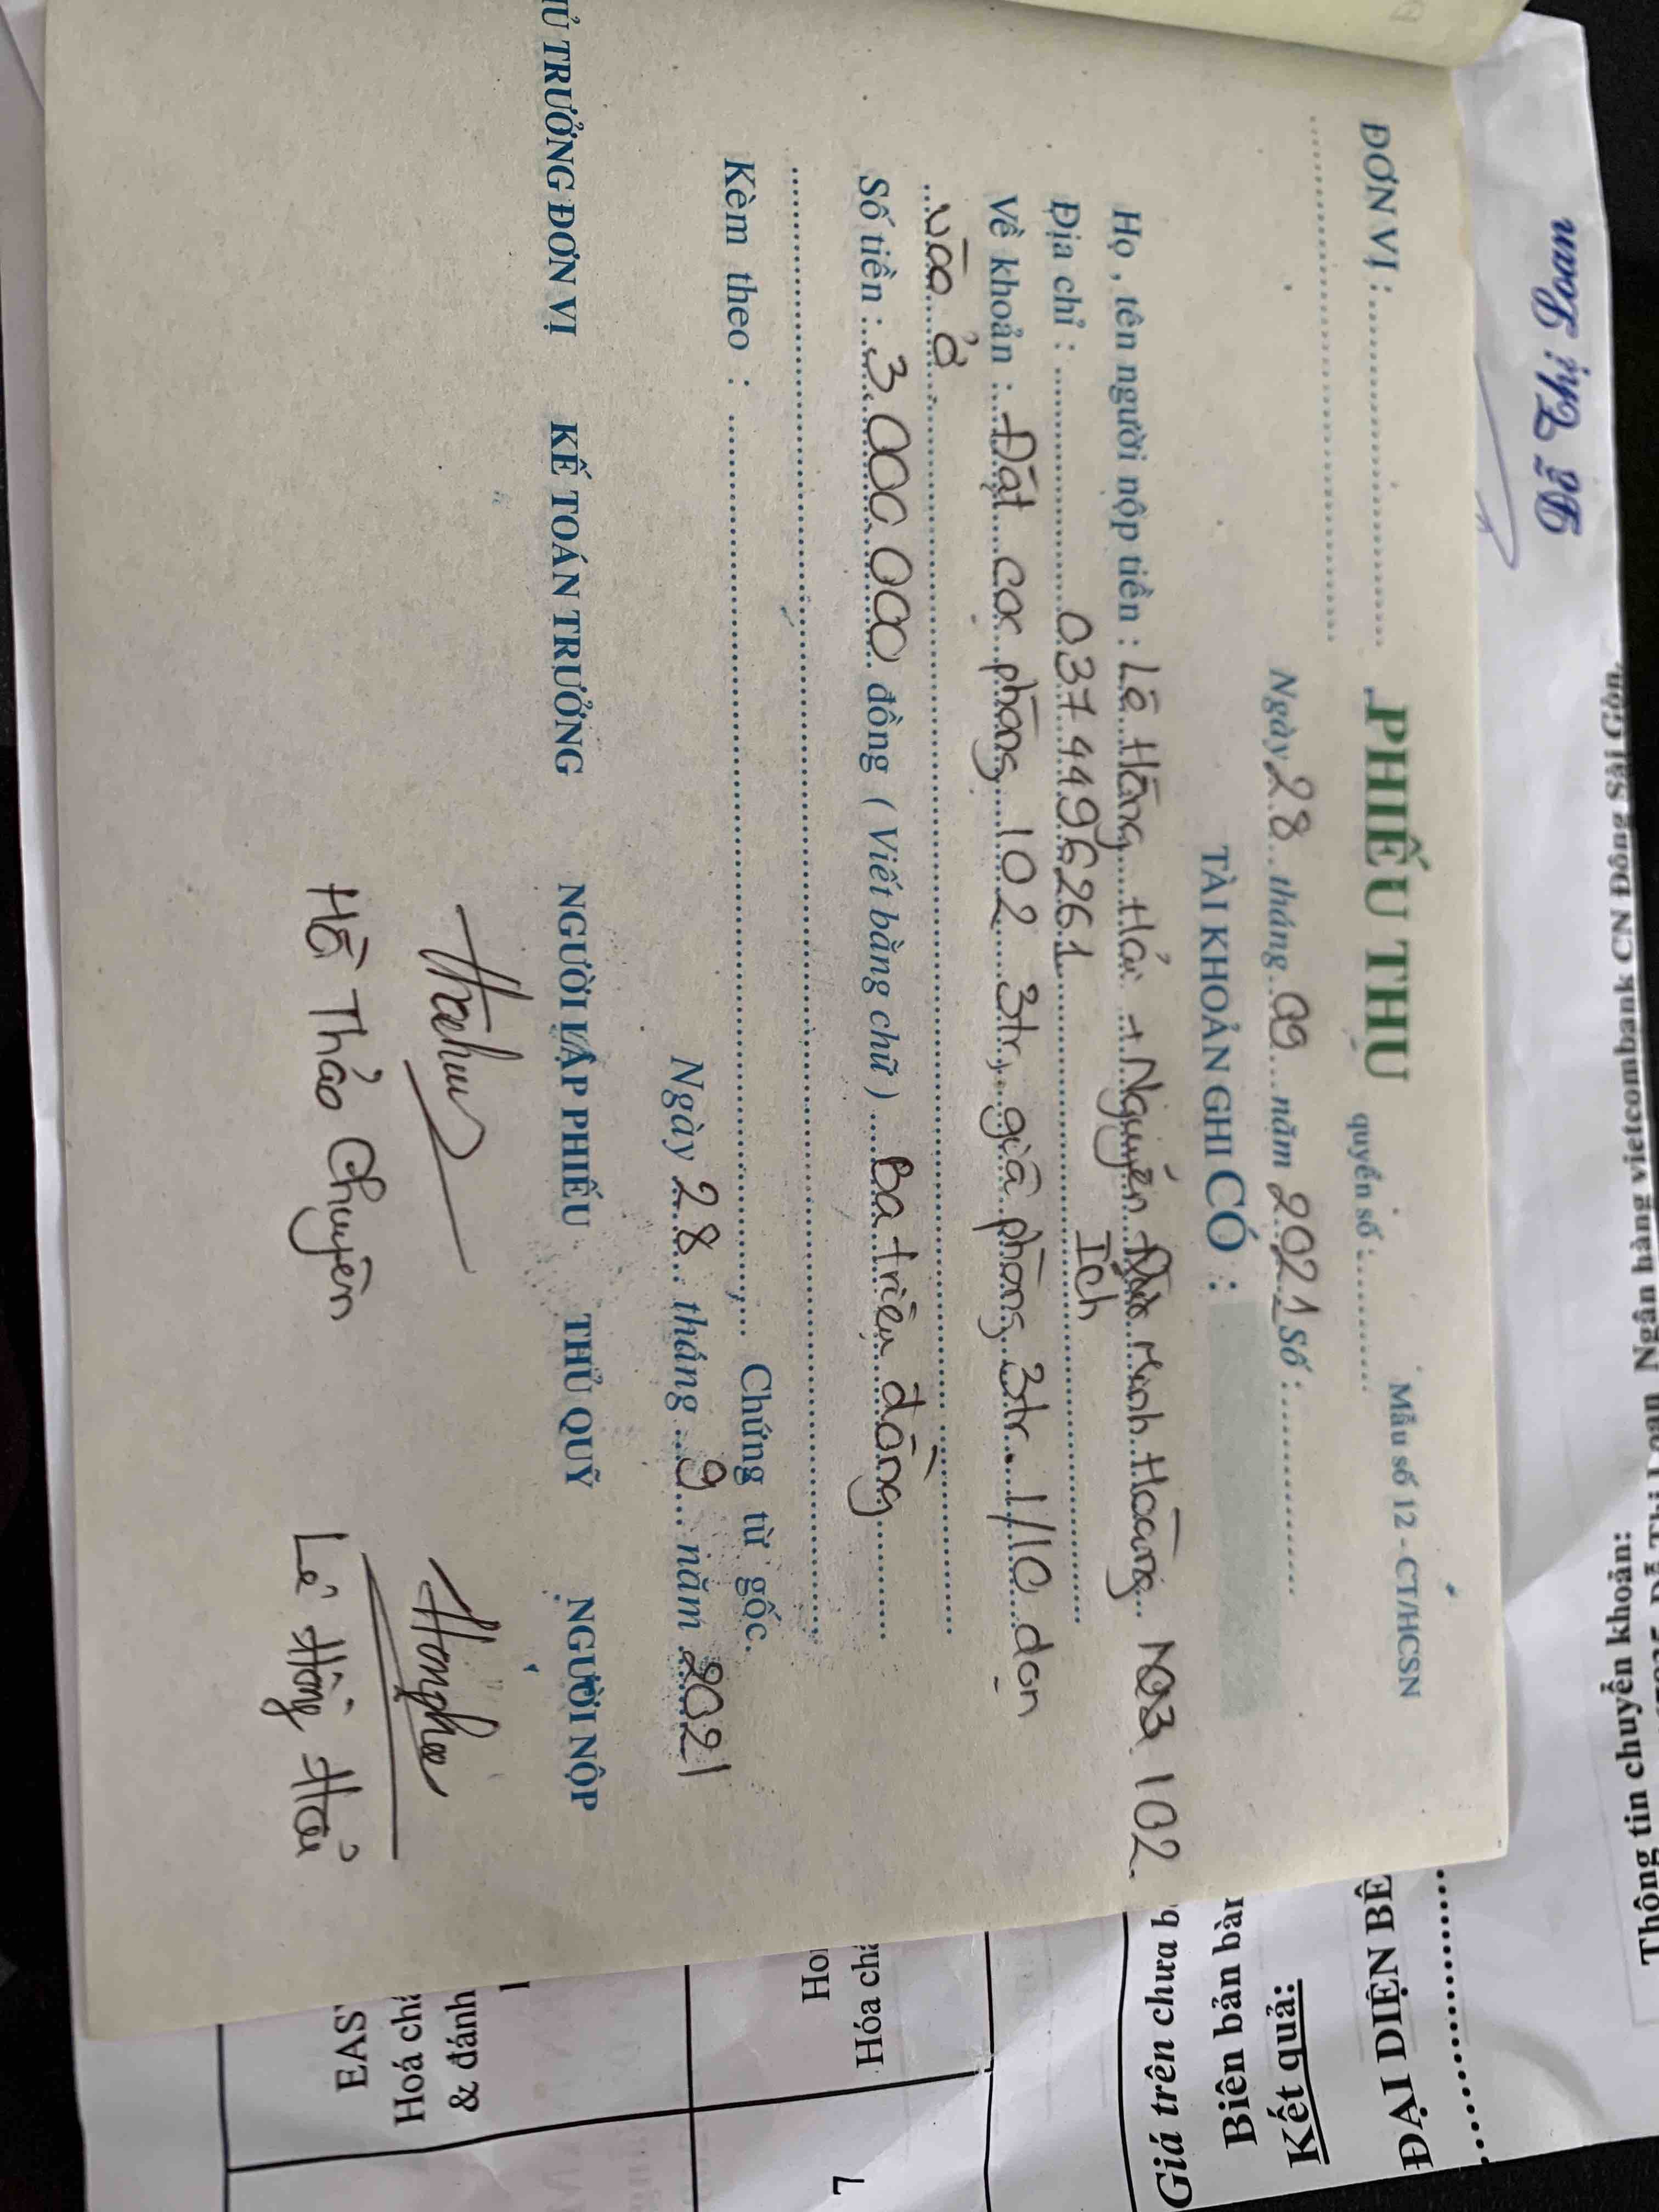 ĐƠN VỊ :
PHIẾU THU
quyển số :
Mẫu số 12 - CT/HCSN
Ngày 28 tháng 09 năm 2021 số :
TÀI KHOẢN GHI CÓ :
Họ , tên người nộp tiền : Lê Hồng Hải + Nguyễn Minh Hoàng 102
Ich
Địa chỉ : 0374496261
Về khoản : Đặt cọc phòng 102 3tr, giá phòng 3tr. 1/10 dọn
vào ở
Số tiền : 3.000.000 đồng ( Viết bằng chữ ) Ba triệu đồng
Kèm theo : Chứng từ gốc.
Ngày 28 tháng 9 năm 2021
Ủ TRƯỞNG ĐƠN VỊ KẾ TOÁN TRƯỞNG NGƯỜI LẬP PHIẾU THỦ QUỸ NGƯỜI NỘP
Hồ Thảo Chuyên
Lê Hồng Hải
Đỗ Thị Loan
Thông tin chuyển khoản:
Đỗ Thị Loan Ngân hàng vietcombank CN Đông Sài Gòn.
EAS
Hoá chấ
& đánh
7
Hóa chấ
Giá trên chưa b
Biên bản bàn
Kết quả:
ĐẠI DIỆN BÊ